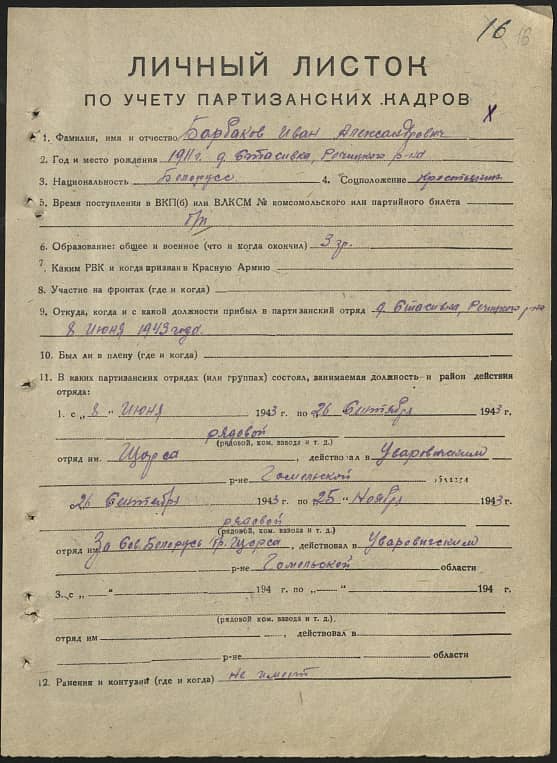 16 16
ЛИЧНЫЙ ЛИСТОК
ПО УЧЕТУ ПАРТИЗАНСКИХ КАДРОВ
х
1. Фамилия, имя и отчество Барбаков Иван Александрович
2. Год и место рождения 1911 г. д. Стасивка, Речицкого р-на
3. Национальность Белорусс 4. Соцположение крестьянин
5. Время поступления в ВКП(б) или ВЛКСМ № комсомольского или партийного билета
б/п
6. Образование: общее и военное (что и когда окончил) 3 гр.
7. Каким РВК и когда призван в Красную Армию
8. Участие на фронтах (где и когда)
9. Откуда, когда и с какой должности прибыл в партизанский отряд д. Стасивка, Речицкого р-на
8 Июня 1943 года.
10. Был ли в плену (где и когда)
11. В каких партизанских отрядах (или группах) состоял, занимаемая должность и район действия
отряда:
1. с „ 8 " Июня 1943 г. по 26 Сентября 1943 г.
рядовой
(рядовой, ком. взвода и т. д.)
отряд им. Щорса , действовал в Уваровичским
р-не Гомельской области
26 Сентября 1943 г. по 25 " Ноября 1943 г.
рядовой
(рядовой, ком. взвода и т. д.)
отряд им За Сов. Белорусь Щорса , действовал в Уваровичским
р-не Гомельской области
3. с „ — " 194 г. по „ — " 194 г.
(рядовой, ком. взвода и т. д.)
отряд им , действовал в
р-не области
12. Ранения и контузии (где и когда) не имеет